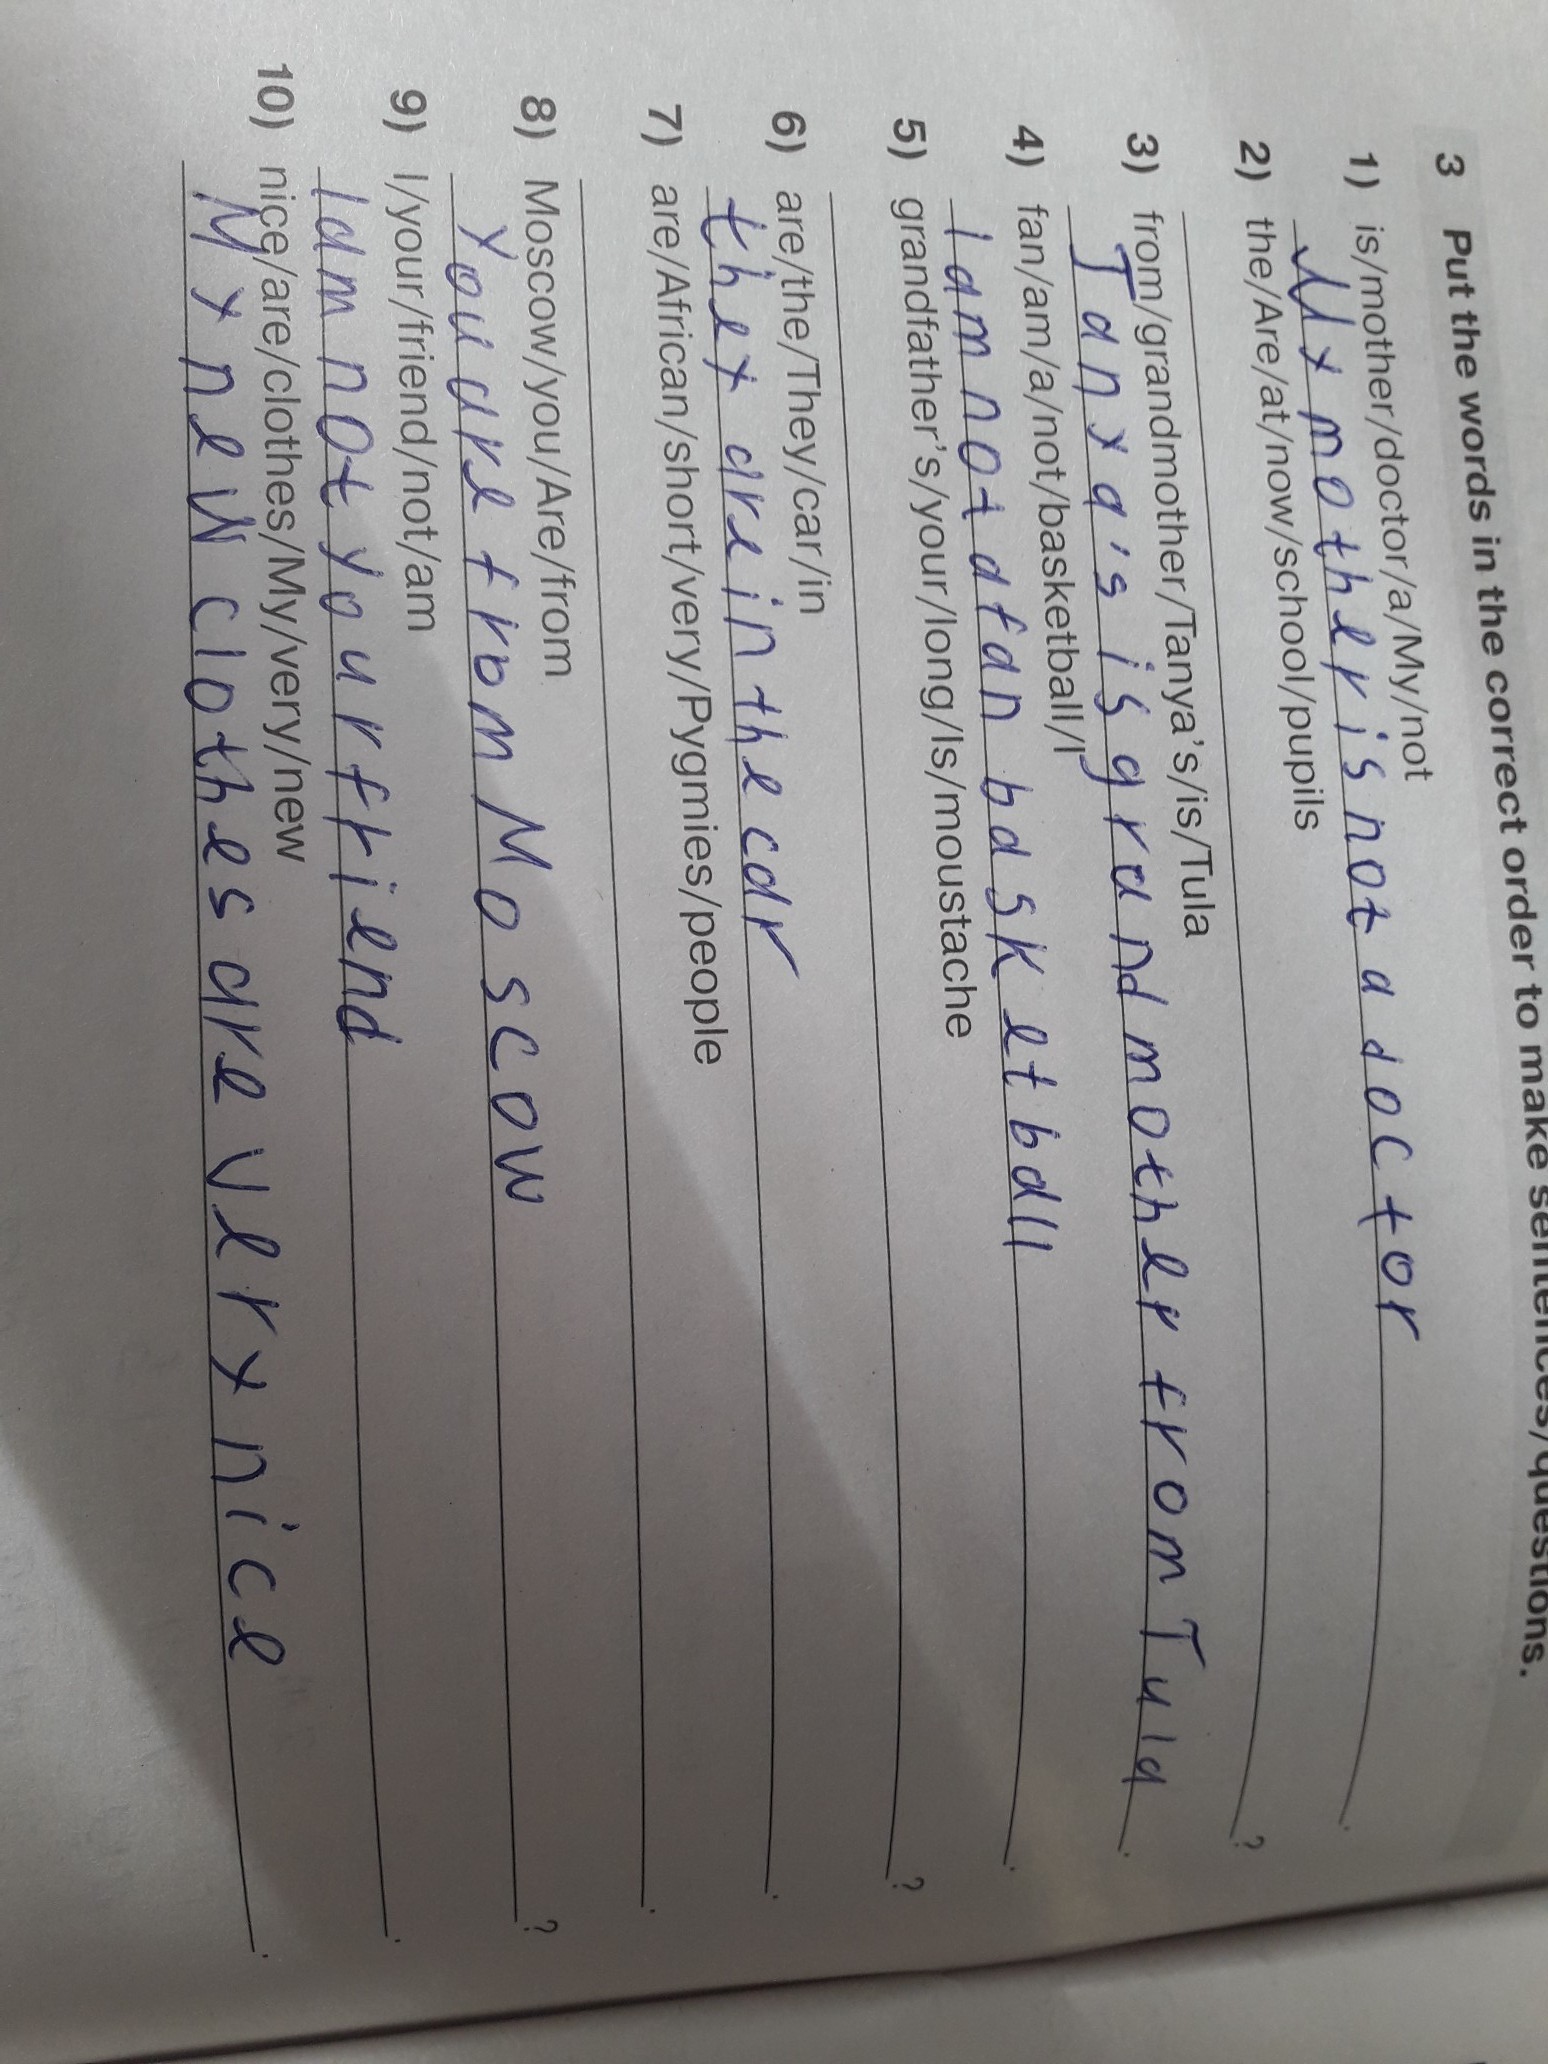 3 Put the words in the correct order to make sentences/questions.
1) is/mother/doctor/a/My/not
My mother is not a doctor.
2) the/Are/at/now/school/pupils
?
3) from/grandmother/Tanya's/is/Tula
Tanya's is grandmother from Tula.
4) fan/am/a/not/basketball/I
I am not a fan basketball.
5) grandfather's/your/long/Is/moustache
?
6) are/the/They/car/in
they are in the car.
7) are/African/short/very/Pygmies/people
.
8) Moscow/you/Are/from
you are from Moscow?
9) I/your/friend/not/am
I am not your friend.
10) nice/are/clothes/My/very/new
My new clothes are very nice.